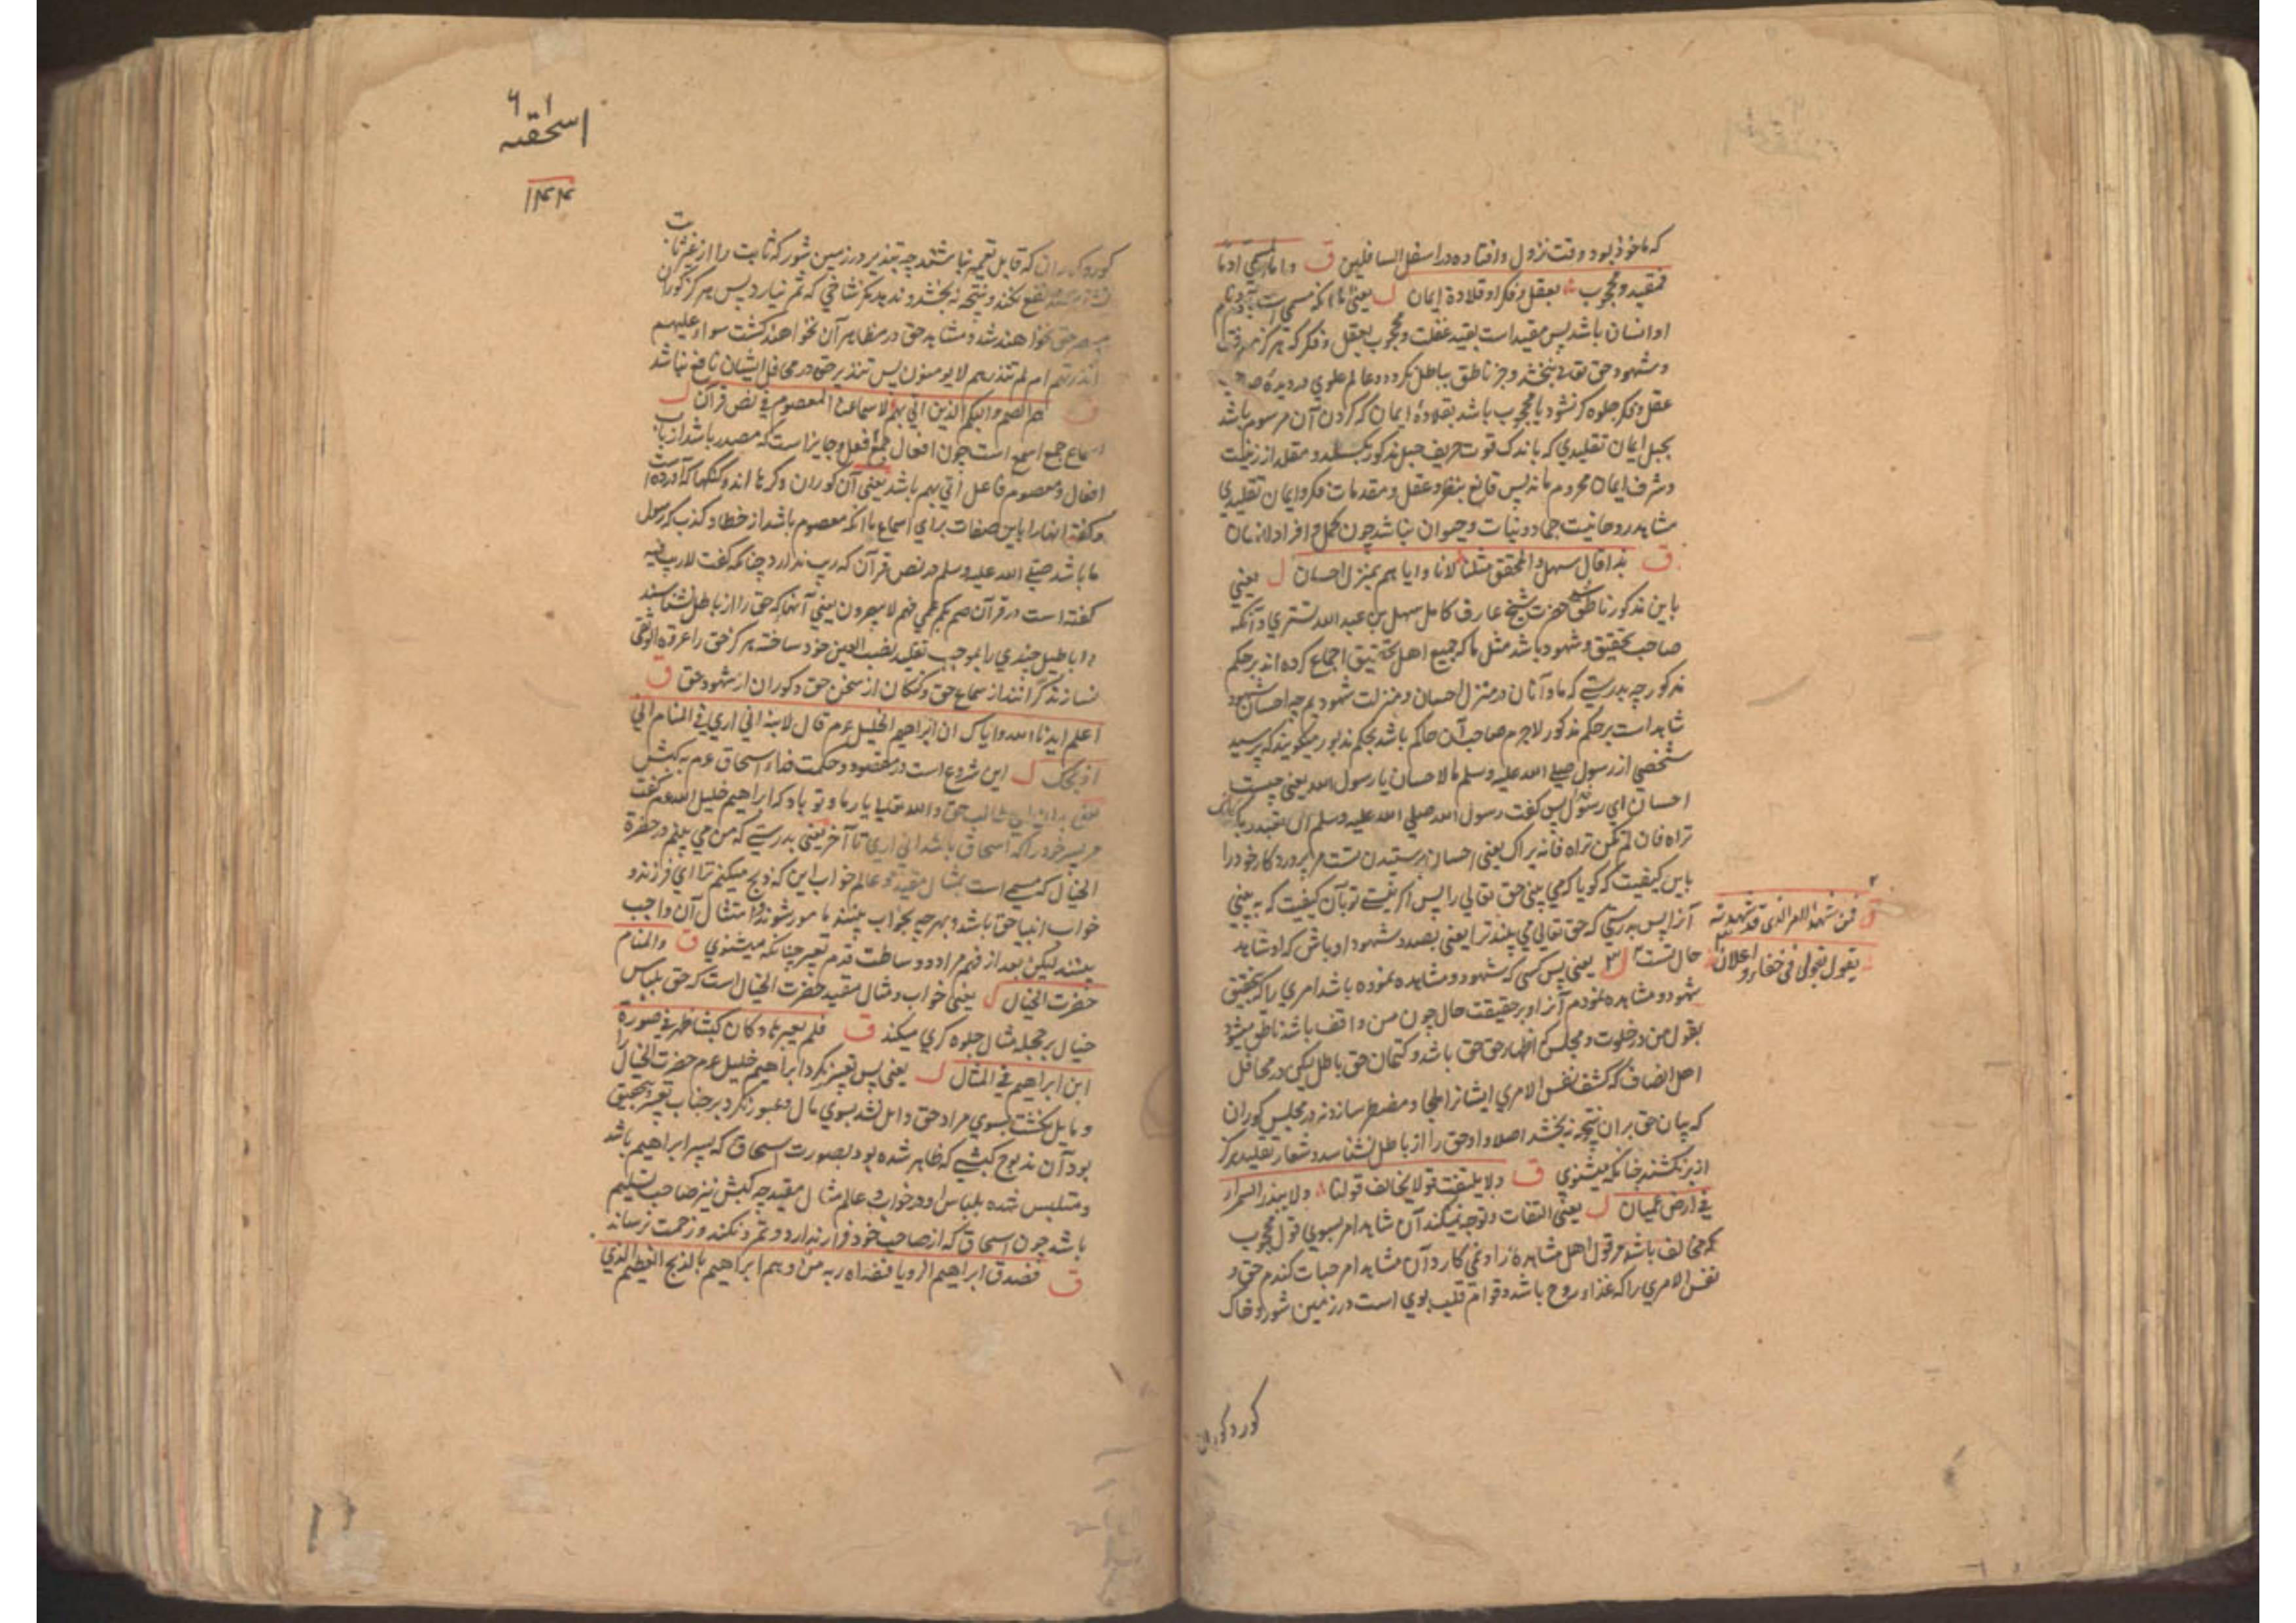 که ماخوذ بود وقت نزول و افتاده در اسفل السافلین ق واما المسمی آدما
فمقید ومحجوب بعقل وفکر او قلادة ایمان ل یعنی اما آنکه مسمی است بآدم
او انسان باشد پس مقید است بقید غفلت و محجوب بعقل و فکر که هرگز
و شهود حق تعالی نبخشد و جز ناطق بباطل نگردد و عالم علوی در دیدهٔ
عقل و فکر جلوه گر نشود یا محجوب باشد بقلادهٔ ایمان که گردن آن مرسوم باشد
بحبل ایمان تقلیدی که باندک قوت حریف حبل مذکور بگسلد و مقلد از
و شرف ایمان محروم ماند پس قانع بنظر و عقل و مقدمات فکر و ایمان تقلیدی
مشاهد روحانیت جماد و نبات و حیوان نباشد چون کمل و افراد انسان
ق بذا قال سهل والمحقق مثلنا لانا وایاهم بمنزل احسان ل یعنی
باین مذکور ناطق شد حضرت شیخ عارف کامل سهل بن عبد الله تستری و آنکه
صاحب تحقیق و شهود باشد مثل ما که جمیع اهل تحقیق اجماع کرده اند بر حکم
مذکور چه بدرستی که ما و آنان در منزل احسان و منزلت شهودیم چه احسان شهود
شاهد است بر حکم مذکور لاجرم صاحب آن حاکم باشد بحکم مذبور میگویند که پرسید
شخصی از رسول صلی الله علیه وسلم ما الاحسان یا رسول الله یعنی چیست
احسان ای رسول خدا پس گفت رسول الله صلی الله علیه وسلم ان تعبد ربک کانک
تراه فان لم تکن تراه فانه یراک یعنی احسان پرستیدن تست مر پروردکار خود را
باین کیفیت که گویا که می بینی حق تعالی را پس اگر نیستی تو بآن کیفیت که به بینی
آنرا پس بدرستی که حق تعالی می بیند ترا یعنی بصدد شهود او باش که او شاهد
حال تست ل یعنی پس کسی که شهود و مشاهده نموده باشد امری را که بتحقیق
ق فمن شهد الامر الذی قد شهدته
یقول بقولی فی خفاء واعلان
شهود و مشاهده نمودم آنرا و بر حقیقت حال چون من واقف باشد ناطق میشود
بقول من در خلوت و مجلس اظهار حق حق باشد و کتمان حق باطل لیکن در محافل
اهل انصاف که کشف نفس الامری ایشانرا ملجا و مضطر سازد نه در مجلس کوران
که بیان حق بر ان نتیجه نبخشد اصلا و او حق را از باطل نشناسد و شعار تقلید هرگز
از بر نکشند چنانکه میشنوی ق ولا یلتفت قولا یخالف قولنا ولا یبذر السمراء
فی ارض عمیان ل یعنی التفات و توجه نمیکند آن شاهد امر بسوی قول محجوب
که مخالف باشد مر قول اهل مشاهده را و نمی کارد آن مشاهد امر حبات گندم حق و
نفس الامری را که غذاء روح باشد و قوام قلب بوی است در زمین شور و خاک
کور و کوران
اسحقیه
۱۴۴
کور و کوران که قابل تعمیه نباشند چه تبذیر در زمین شور که ثابت را از غیر ثابت
نفع نکند و نتیجه نبخشد و ندهد مگر شاخی که ثمر نیارد پس هرگز کوران
مبصر حق نخواهند شد و مشاهد حق در مظاهر آن نخواهند گشت سواء علیهم
ءانذرتهم ام لم تنذرهم لا یومنون پس تنذیر حق در محافل ایشان نافع نباشد
ق هم الصم والبکم الذین اتی بهم لاسماعنا المعصوم فی نص قرآن ل
اسماع جمع اسمع است چون افعال جمع افعل و جایز است که مصدر باشد از باب
افعال و معصوم فاعل اتی بهم باشد یعنی آن کوران و کرها اند و گنگها که آورده است
و گفته انها را باین صفات برای اسماع ما انکه معصوم باشد از خطا و کذب که رسول
ما باشد صلی الله علیه وسلم در نص قرآن که ریب ندارد چنانکه گفت لا ریب فیه
گفته است در قرآن صم بکم عمی فهم لا یبصرون یعنی آنها که حق را از باطل نشناسند
و اباطیل چندی را بموجب تقلید نصب العین خود ساخته هرگز حق را عروة الوثقی
نسازند کرانند از سماع حق و گنگان از سخن حق و کوران از شهود حق ق
اعلم ایدنا الله وایاک ان ابراهیم الخلیل عم قال لابنه انی اری فی المنام انی
اذبحک ل این شروع است در مقصود و حکمت فداء اسحاق عم به کبش
یعنی بدان ای طالب حق و الله تعالی یار ما و تو باد که ابراهیم خلیل الله عم گفت
مر پسر خود را که اسحاق باشد انی اری تا آخر یعنی بدرستی که من می بینم در حضرة
الخیال که مسمی است بمثال مقید و عالم خواب این که ذبح میکنم ترا ای فرزند و
خواب انبیا حق باشد و بهر چه بخواب بینند مامور شوند و امتثال آن واجب
بینند لیکن بعد از فهم مراد و وساطت قدم تعبیر چنانکه میشنوی ق والمنام
حضرت الخیال ل یعنی خواب و مثال مقید حضرت الخیال است که حق بلباس
خیال بر مجله مثال جلوه گری میکند ق فلم یعبرها وکان کبشا ظهر فی صورة
ابن ابراهیم فی المثال ل یعنی پس تعبیر نکرد ابراهیم خلیل عم حضرت الخیال را
و مایل نگشت بسوی مراد حق و ایل نشد بسوی مآل و عبور نکرد بر جناب تعبیر و بتحقیق
بود آن مذبوح کبشی که ظاهر شده بود بصورت اسحاق که پسر ابراهیم باشد
و متلبس شده بلباس او در خواب و عالم مثال مقید چه کبش نیز صاحب تسلیم
باشد چون اسحاق که از صاحب خود فرار ندارد و تمرد نکند و زحمت نرساند
ق فصدق ابراهیم الرویا ففداه ربه من وهم ابراهیم بالذبح العظیم الذی